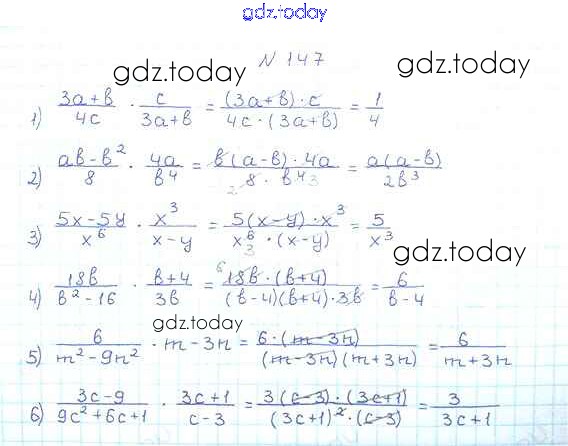 gdz.today
N 147
gdz.today gdz.today
1) (3a+b)/(4c) · c/(3a+b) = ((3a+b)·c)/(4c·(3a+b)) = 1/4
2) (ab-b²)/8 · 4a/b⁴ = (b(a-b)·4a)/(8·b⁴) 2 3 = (a(a-b))/(2b³)
3) (5x-5y)/x⁶ · x³/(x-y) = (5(x-y)·x³)/(x⁶·(x-y)) 3 = 5/x³
gdz.today
4) 18b/(b²-16) · (b+4)/(3b) = (6 18b·(b+4))/((b-4)(b+4)·3b) = 6/(b-4)
gdz.today
5) 6/(m²-9n²) · m-3n = (6·(m-3n))/((m-3n)(m+3n)) = 6/(m+3n)
6) (3c-9)/(9c²+6c+1) · (3c+1)/(c-3) = (3(c-3)·(3c+1))/((3c+1)²·(c-3)) = 3/(3c+1)